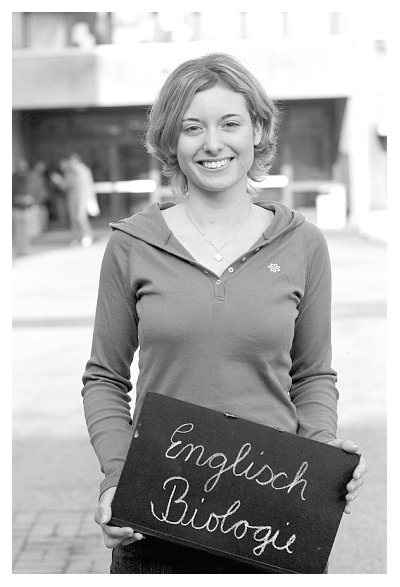 Englisch
Biologie